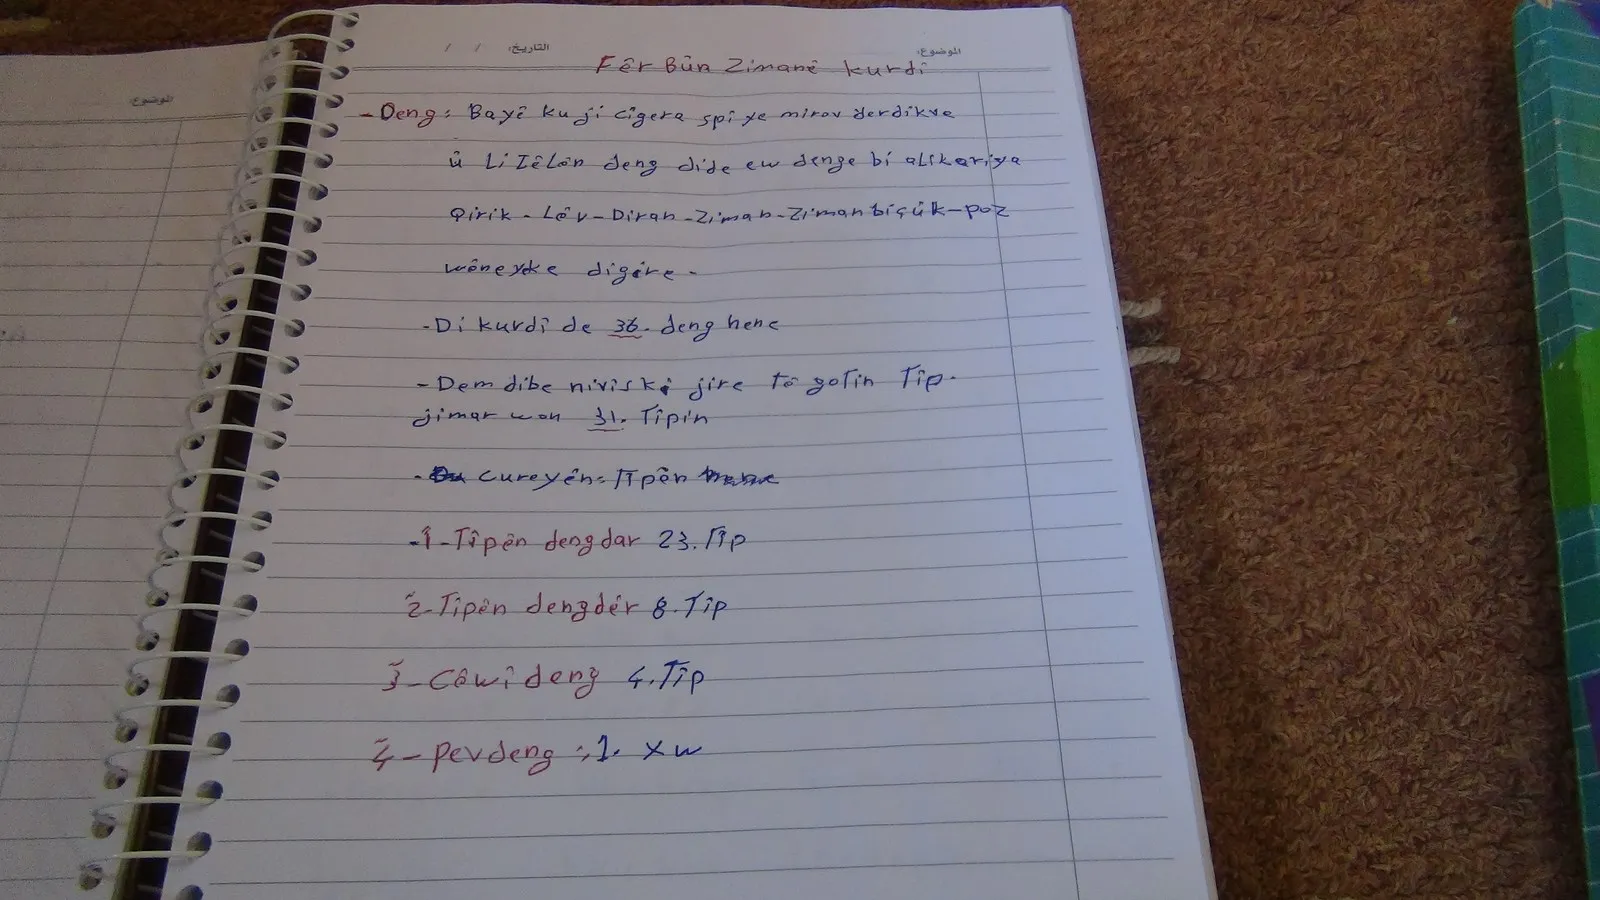 الموضوع:
التاريخ: / /
الموضوع:
Fêr Bûn Zimanê kurdî
- Deng: Bayê ku ji cîgera spî ye mirov derdikve
û Li Zêlên deng dide ew denge bi alîkariya
Qirik - Lêv - Diran - Ziman - Ziman biçûk - poz
wêneyke digére -
- Di kurdî de 36. deng hene
- Dem dibe nivîskî jire tê gotin Tîp.
jimar wan 31. Tîpin
- cureyên: Tîpên
- 1 - Tîpên dengdar 23. Tîp
2 - Tîpên dengdér 8. Tîp
3 - Cêwî deng 4. Tîp
4 - pevdeng : 1. xw